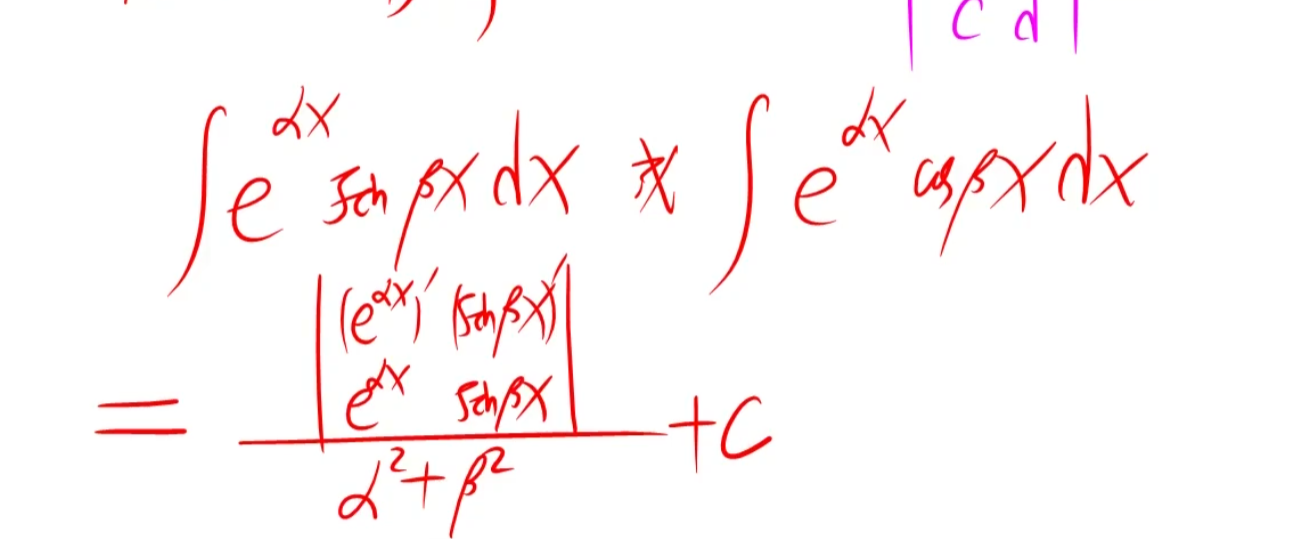 | c d |
∫ e^{αx} sin βx dx 或 ∫ e^{αx} cos βx dx
| (e^{αx})' (sin βx)' |
| e^{αx} sin βx |
= ――― + C
α² + β²